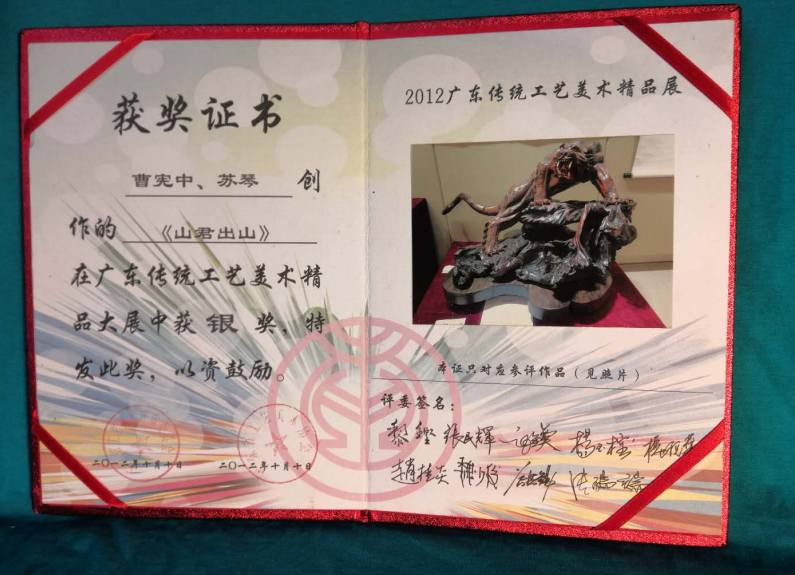 获奖证书
曹宪中、苏琴 创
作的 《山君出山》
在广东传统工艺美术精
品大展中获银奖，特
发此奖，以资鼓励。
二〇一二年十月十日
二〇一二年十月十日
2012广东传统工艺美术精品展
本证只对应参评作品（见照片）
评委签名：